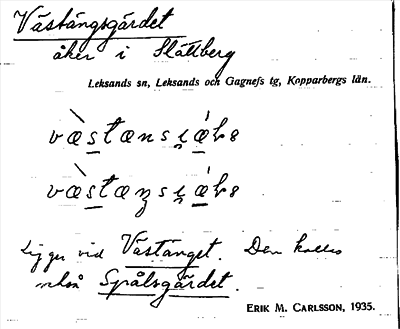 Västängsgärdet
åker i Slättberg
Leksands sn, Leksands och Gagnefs tg, Kopparbergs län.
Ligger vid Västänget. Den kallas
också Spålsgärdet.
ERIK M. CARLSSON, 1935.